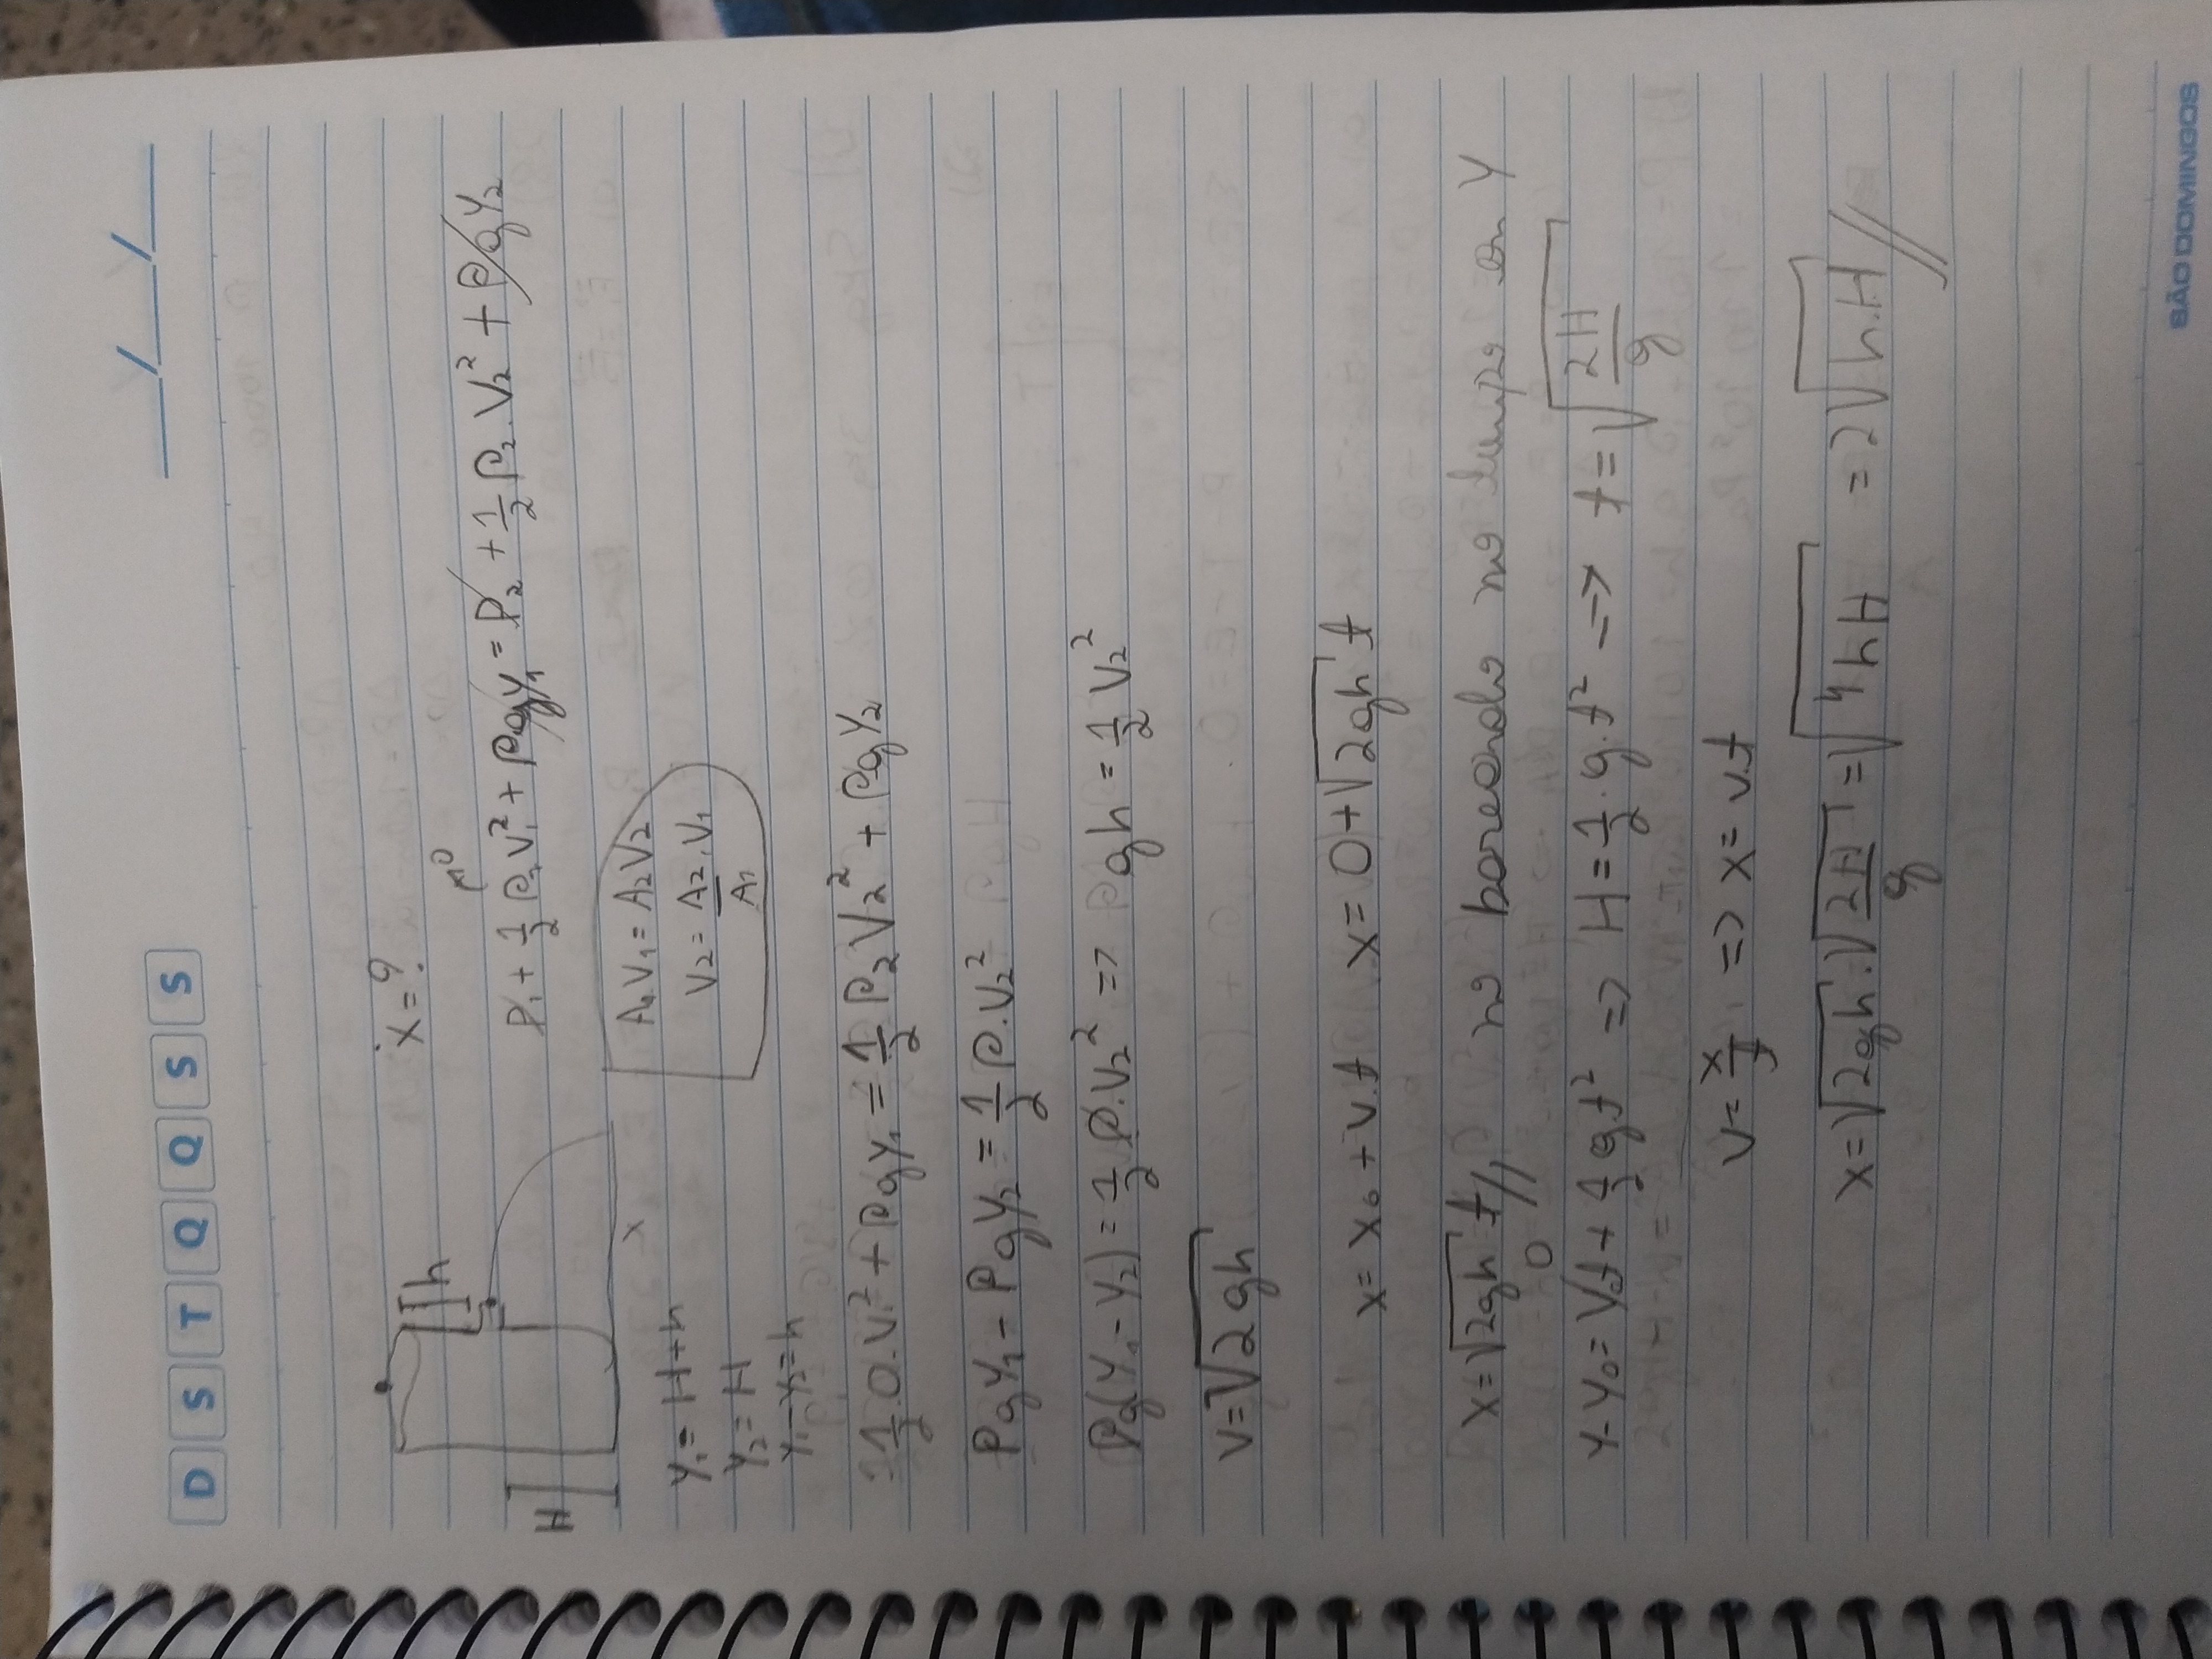 D S T Q Q S S
__/__/__
x=?
h
H
x
P₁ + 1/2 ρ₁V₁² + ρgy₁ = P₂ + 1/2 ρ₂.V₂² + ρgy₂
≈0
A₁V₁ = A₂V₂
V₂ = A₂.V₁/A₁
y₁ = H+h
y₂ = H
y₁-y₂=h
1/2.0.V₁² + ρgy₁ = 1/2 ρ₂V₂² + ρgy₂
ρgy₁ - ρgy₂ = 1/2 ρ.V₂²
ρg(y₁-y₂) = 1/2 ρ.V₂² => ρgh = 1/2 V₂²
V=√2gh
x = x₀ + v.t x = 0+√2gh t
x=√2gh t//, no
no em y
0
y-y₀ = V₀t + 1/2 gt² => H = 1/2.g.t² -> t=√2H/g
V= x/t, => x= v.t
x=√2gh.√2H/g = √4hH = 2√h.H //
SÃO DOMINGOS